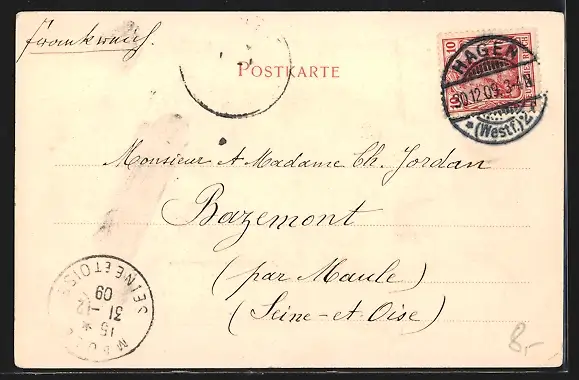 Frankreich.
POSTKARTE
10 10
HAGEN
30.12.09.3-4N
*(Westf.)2*
Monsieur et Madame Ch. Jordan
Bazemont
(par Maule)
(Seine-et-Oise)
SEINE ET OISE
15*
31-12
09
8,-